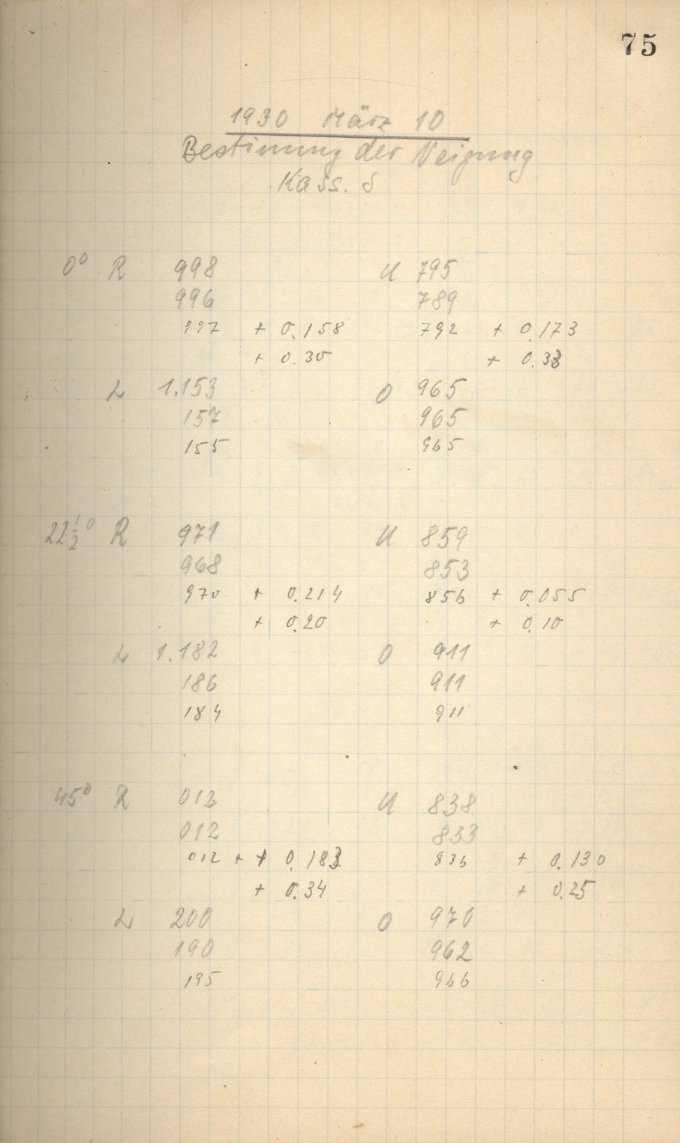 75
1930 März 10
Bestimmung der Neigung
Kass. S
0° R 998 U 795
996 789
997 + 0.158 792 + 0.173
+ 0.30 + 0.33
L 1.153 O 965
157 965
155 965
22½° R 971 U 859
968 853
970 + 0.214 856 + 0.055
+ 0.20 + 0.10
L 1.182 O 911
186 911
184 911
45° R 012 U 838
012 833
012 + + 0.183 836 + 0.130
+ 0.34 + 0.25
L 200 O 970
190 962
195 966